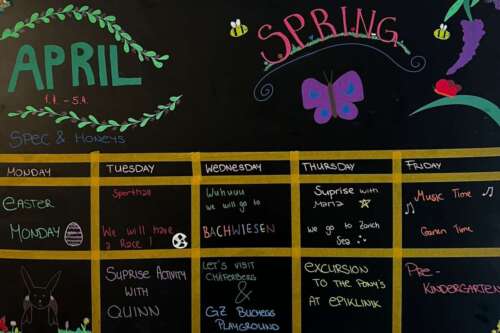 APRIL
SPRING
1.4. - 5.4.
SPEC & HONEYS
MONDAY TUESDAY WEDNESDAY THURSDAY FRIDAY
EASTER
MONDAY
Sporthall
We will have
a Race !
Wuhuuu
we will go to
BACHWIESEN
Suprise with
Maria
we go to Zürich
See
Music Time
Garten Time
SUPRISE ACTIVITY
WITH
QUINN
LET'S VISIT
&
GZ BUCHEGG
PLAYGROUND
EXCURSION
TO THE PONY'S
AT EPIKLINIK
PRE-
KINDERGARTEN